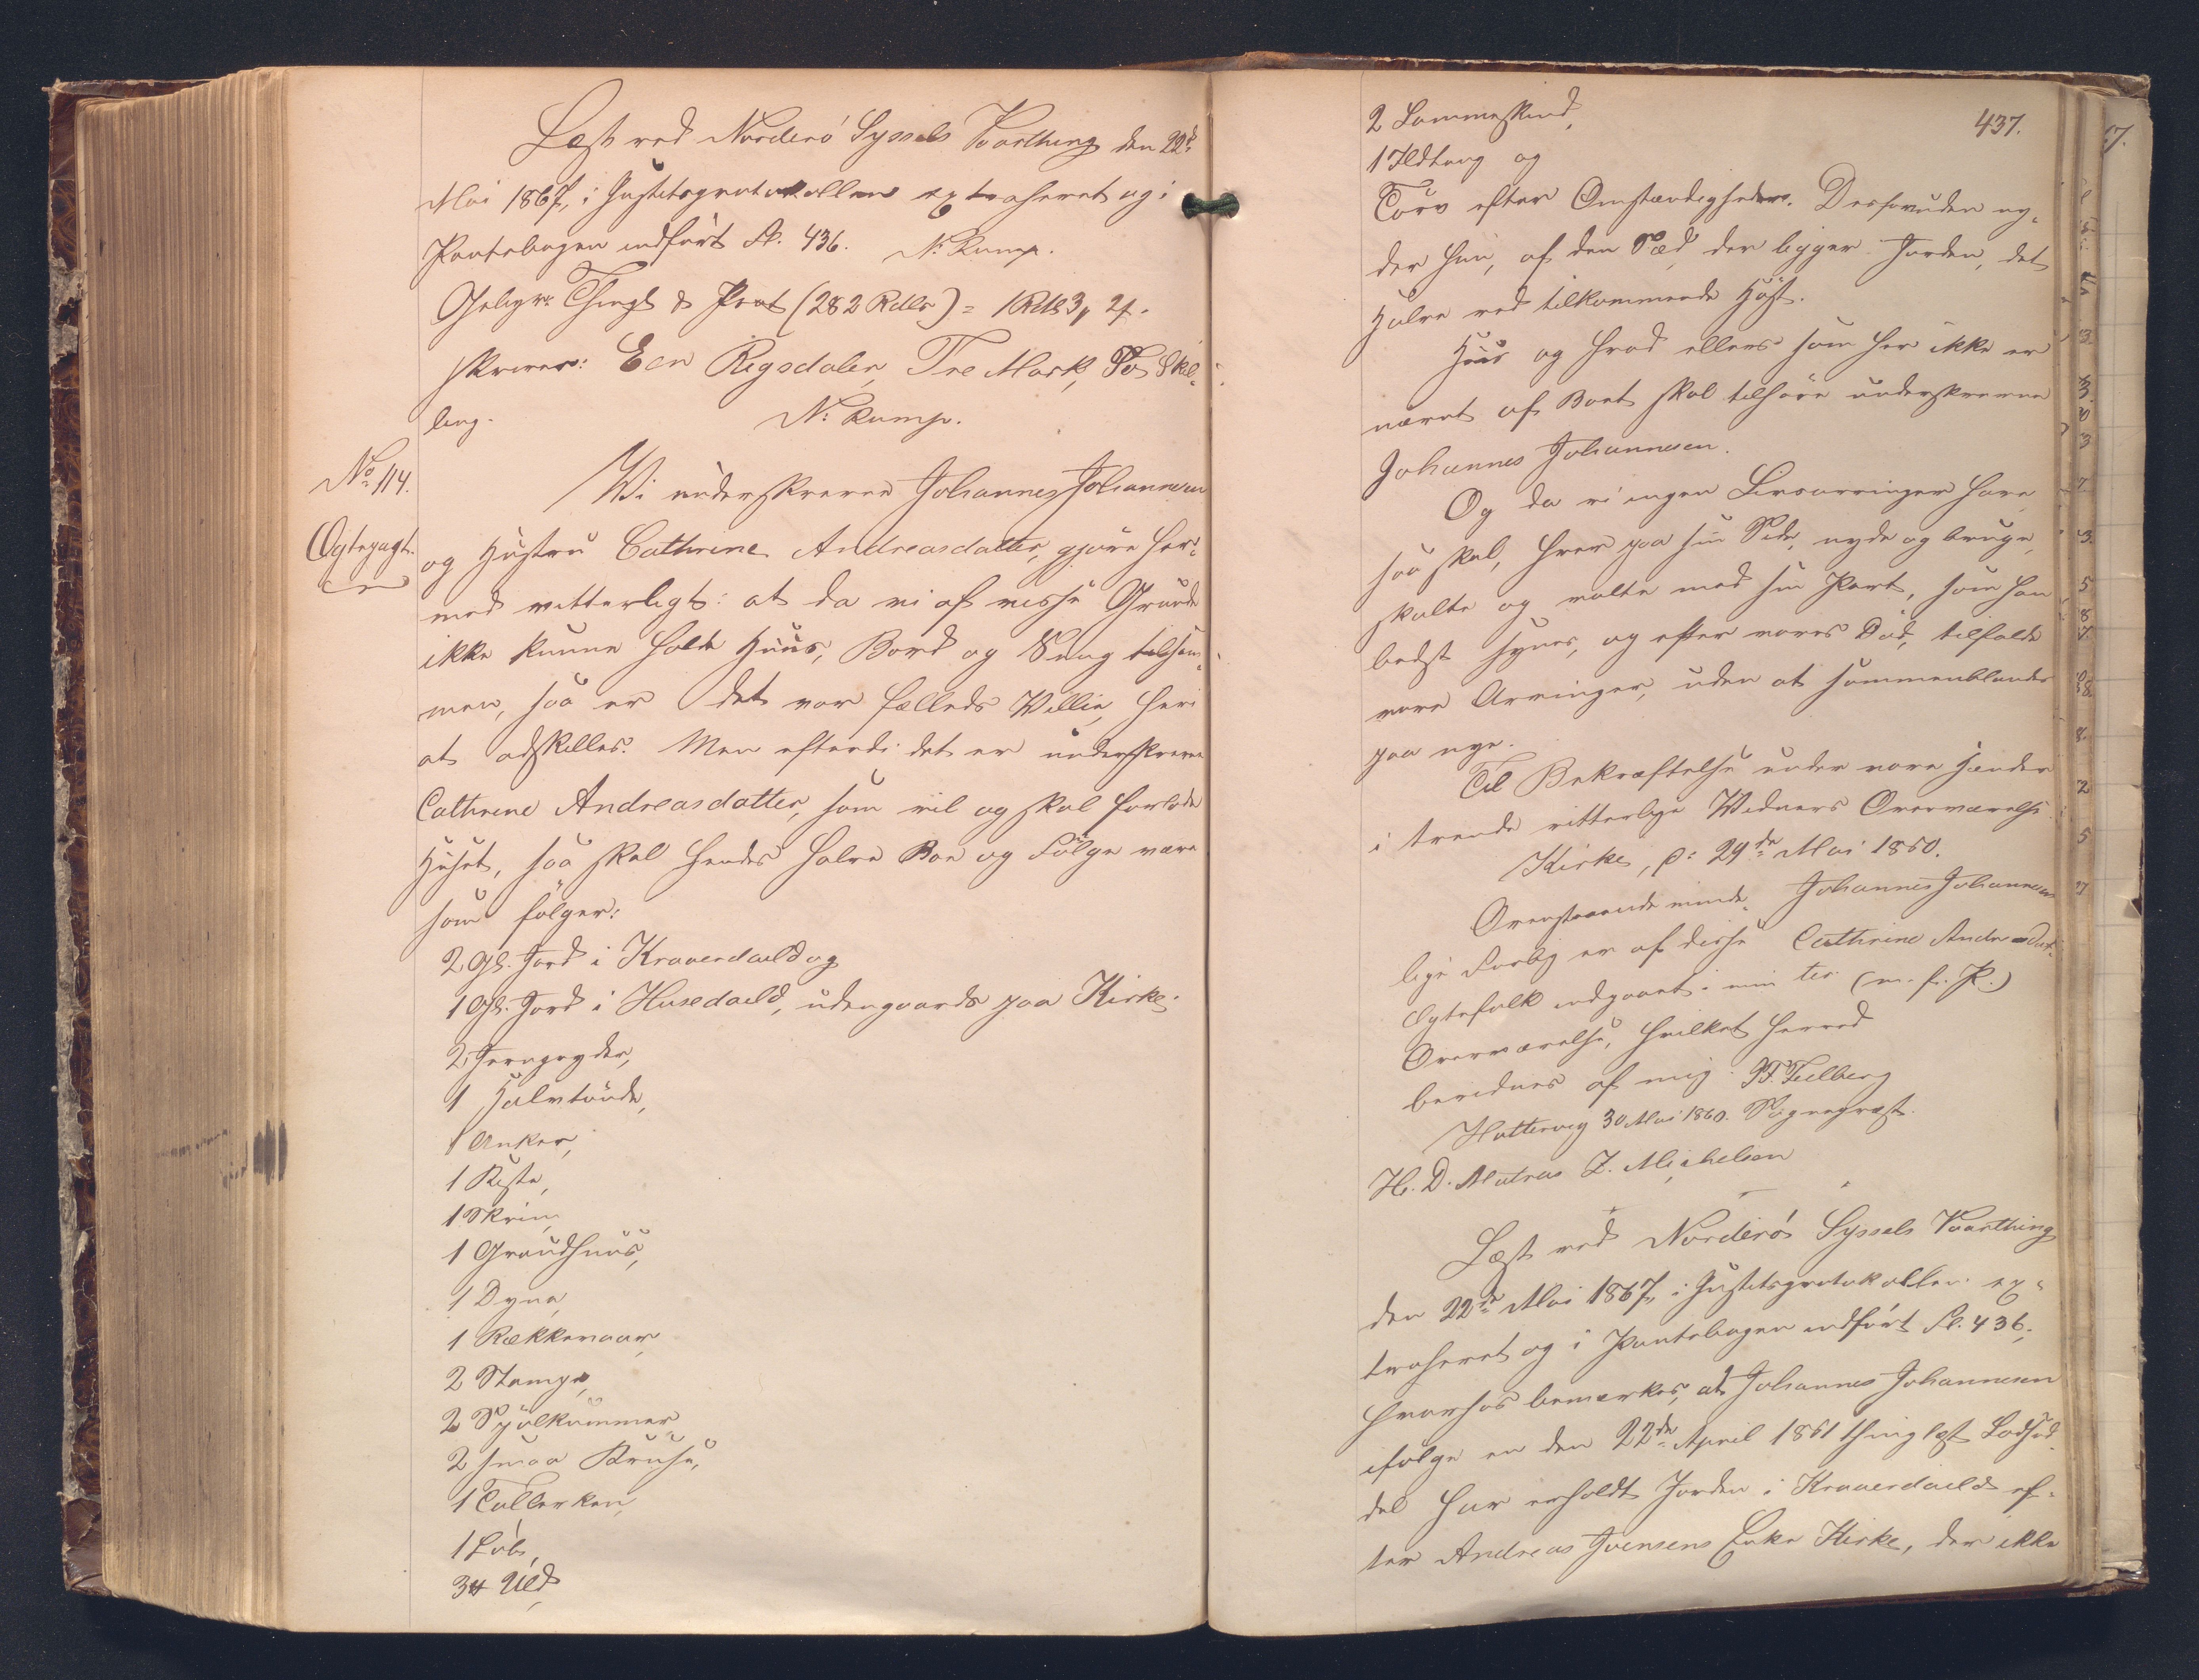 Læst ved Norderö Syssels Vaarthing den 22de
Mai 1867, i Justitsprotokollen extraheret og i
Pantebogen indført Fl. 436. N. Rump.
Gebyr: Thingl & Prot (282 Rdlr) = 1Rd 3 2f.
skriver: Een Rigsdaler, Tre Mark, To Skil-
ling. N. Rump.
No 114.
Ægtepagt.
Vi underskrevne Johannes Johannesen
og Hustru Cathrine Andreasdatter, gjøre her-
med vitterligt: at da vi af visse Grunde
ikke kunne holde Huus, Bord og Seng tilsam-
men, saa er det vor fælleds Villie, heri
at adskilles. Men efterdi det er underskrevne
Cathrine Andreasdatter, som vil og skal forlade
Huset, saa skal hendes halve Boe og Følge være
som følger:
2 Gl. Jord i Kraaerdaild og
1 Gl. Jord i Husedaild, udengaards paa Kirke.
2 Jerngryder,
1 Halvtønde,
1 Anker,
1 Kiste,
1 Skrin,
1 Graudhuus,
1 Dyne,
1 Rækkevaar,
2 Stampe,
2 Spølkummer
2 smaa Kruse,
1 Tallerken,
1 Løb,
3 ℔ Uld,
437.
2 Lammeskind,
1 Ildtang og
Törv efter Omstændighederne. Desforuden ny-
der hun, af den Sæd, der ligger i Jorden, det
Halve ved tilkommende Høst.
Huus og hvad ellers som her ikke er
nævnt af Boet skal tilhøre underskrevne
Johannes Johannesen.
Og da vi ingen Livsarvinger have,
saa skal, hver paa sin Side, nyde og bruge,
skalte og valte med sin Part, som han
bedst synes, og efter vores Død, tilfalde
vore Arvinger, uden at sammenblandes
paa nye.
Til Bekræftelse under vore Hænder
i trende vitterlige Vidners Overværelse.
Kirke, d: 29de Mai 1860.
Ovenstaaende minde- Johannes Johannesen
lige Forlig er af disse Cathrine Andreasdat-
Ægtefolk indgaaet i min ter (m. f. P.)
Overværelse, hvilket herved
bevidnes af mig. P.F. Feilberg
Hattervig 30 Mai 1860. Sognepræst.
H. D. Matras Z. Michelsen
Læst ved Norderøs Syssels Vaarthing
den 22de Mai 1867, i Justitsprotokollen ex-
traheret og i Pantebogen indført Fl. 436;
hvorhos bemærkes, at Johannes Johannesen
ifølge en den 22de April 1861 thinglæst Lodsed-
del har erholdt Jorden i Kraaerdaild ef-
ter Andreas Joensens Enke Kirke, der ikke